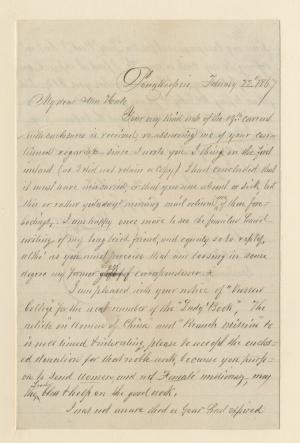 Poughkeepsie, February 22d 1867
My dear Mrs Hale
Your very kind note of the 19th current
with enclosures is received, re-assuring me of your con-
tinued regards - since I wrote you I think on the first
instant (as I did not retain a copy) I had concluded that
it must have miscarried, or that you were absent or sick, but
this so called yesterday's evening mail returned my fore-
bodings. I am happy once more to see the familiar hand
writing of my long tried friend, and equally so to reply,
altho' as you must perceive that am loosing in some
degree my former of correspondence.
I am pleased with your notice of "Vassar
College" for the next number of the "Lady's Book". The
article on Women of China and Branch mission to
is well timed & interesting, please to accept the enclos-
ed donation for that noble work, because you propo-
se to send Women, and not Female missionary, may
the Lord bless & keep on the good work.
I was not aware that a Year had expired